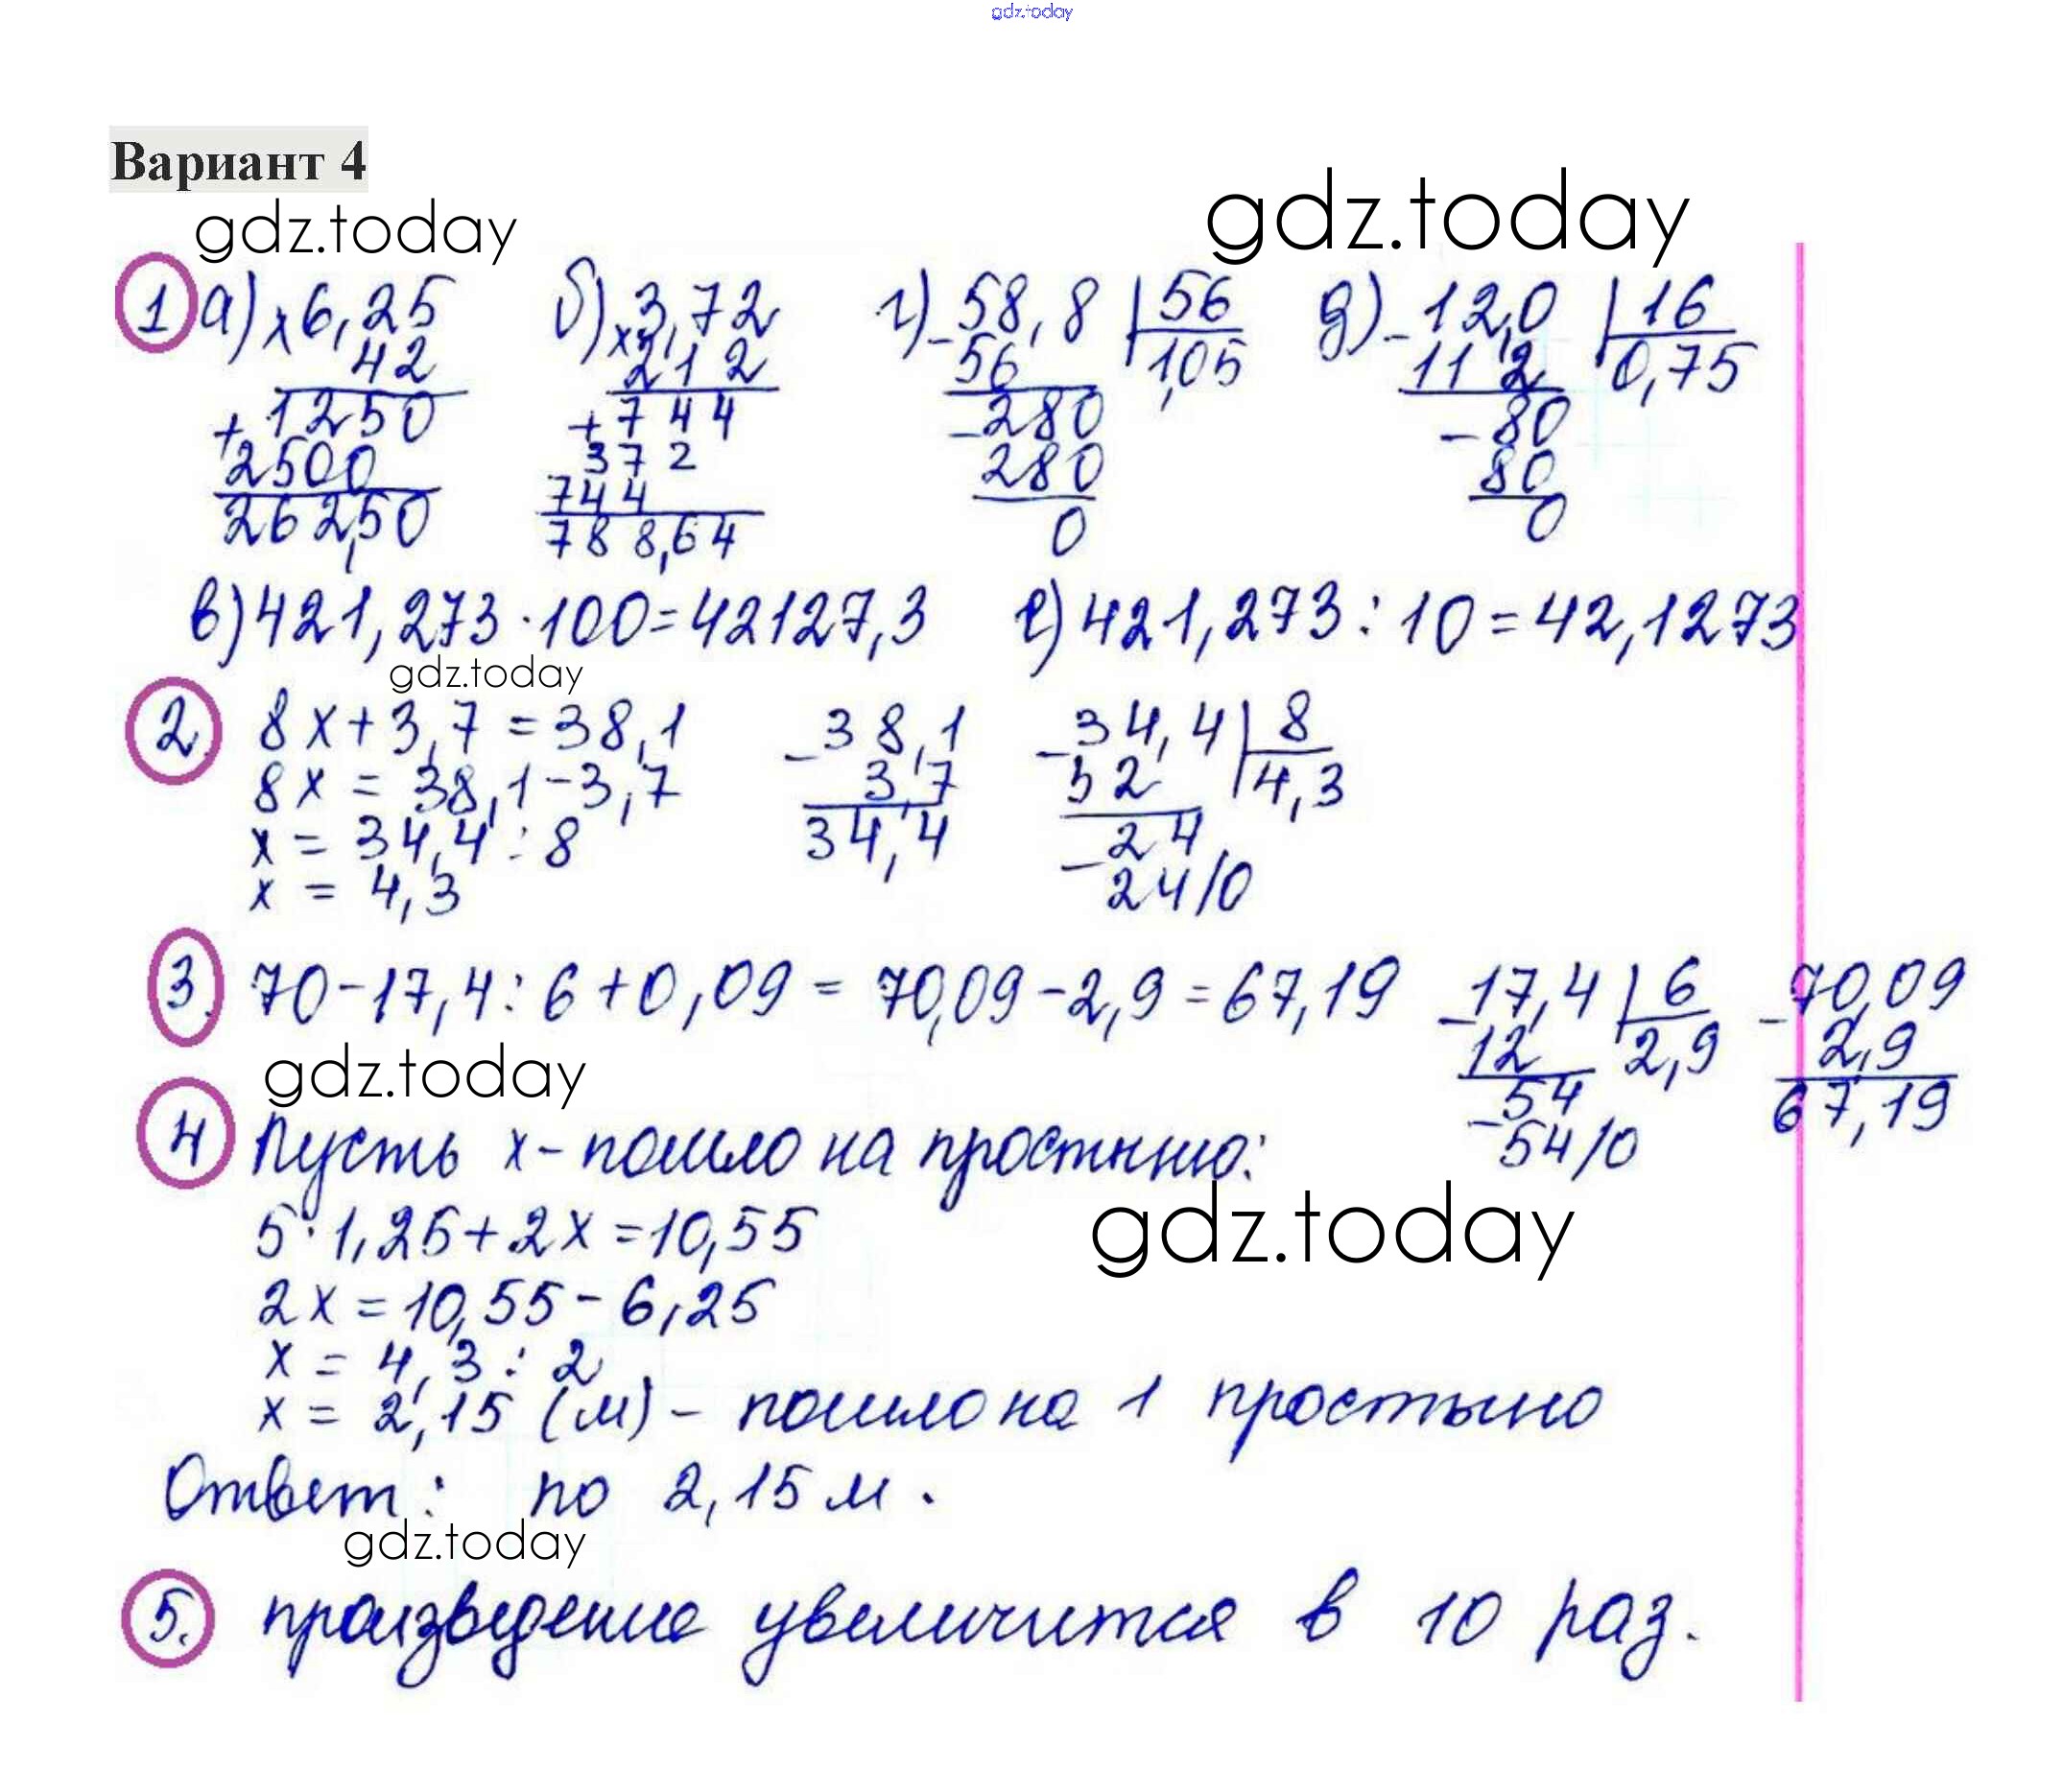 gdz.today
Вариант 4
gdz.today
gdz.today
1 а) x6,25
42
+1250
2500
262,50
б) x3,72
212
+744
372
744
788,64
г) -58,8 | 56
56 1,05
-280
280
0
д) -12,0 | 16
11 2 0,75
-80
80
0
в) 421,273 · 100 = 42127,3 е) 421,273 : 10 = 42,1273
gdz.today
2. 8x + 3,7 = 38,1
8x = 38,1 - 3,7
x = 34,4 : 8
x = 4,3
-38,1
3,7
34,4
-34,4 | 8
32 4,3
-24
24/0
3. 70 - 17,4 : 6 + 0,09 = 70,09 - 2,9 = 67,19
-17,4 | 6
12 2,9
-54
54/0
-70,09
2,9
67,19
gdz.today
4 Пусть x - пошло на простыню:
5 · 1,25 + 2x = 10,55
gdz.today
2x = 10,55 - 6,25
x = 4,3 : 2
x = 2,15 (м) - пошло на 1 простыню
Ответ: по 2,15 м.
gdz.today
5. произведение увеличится в 10 раз.